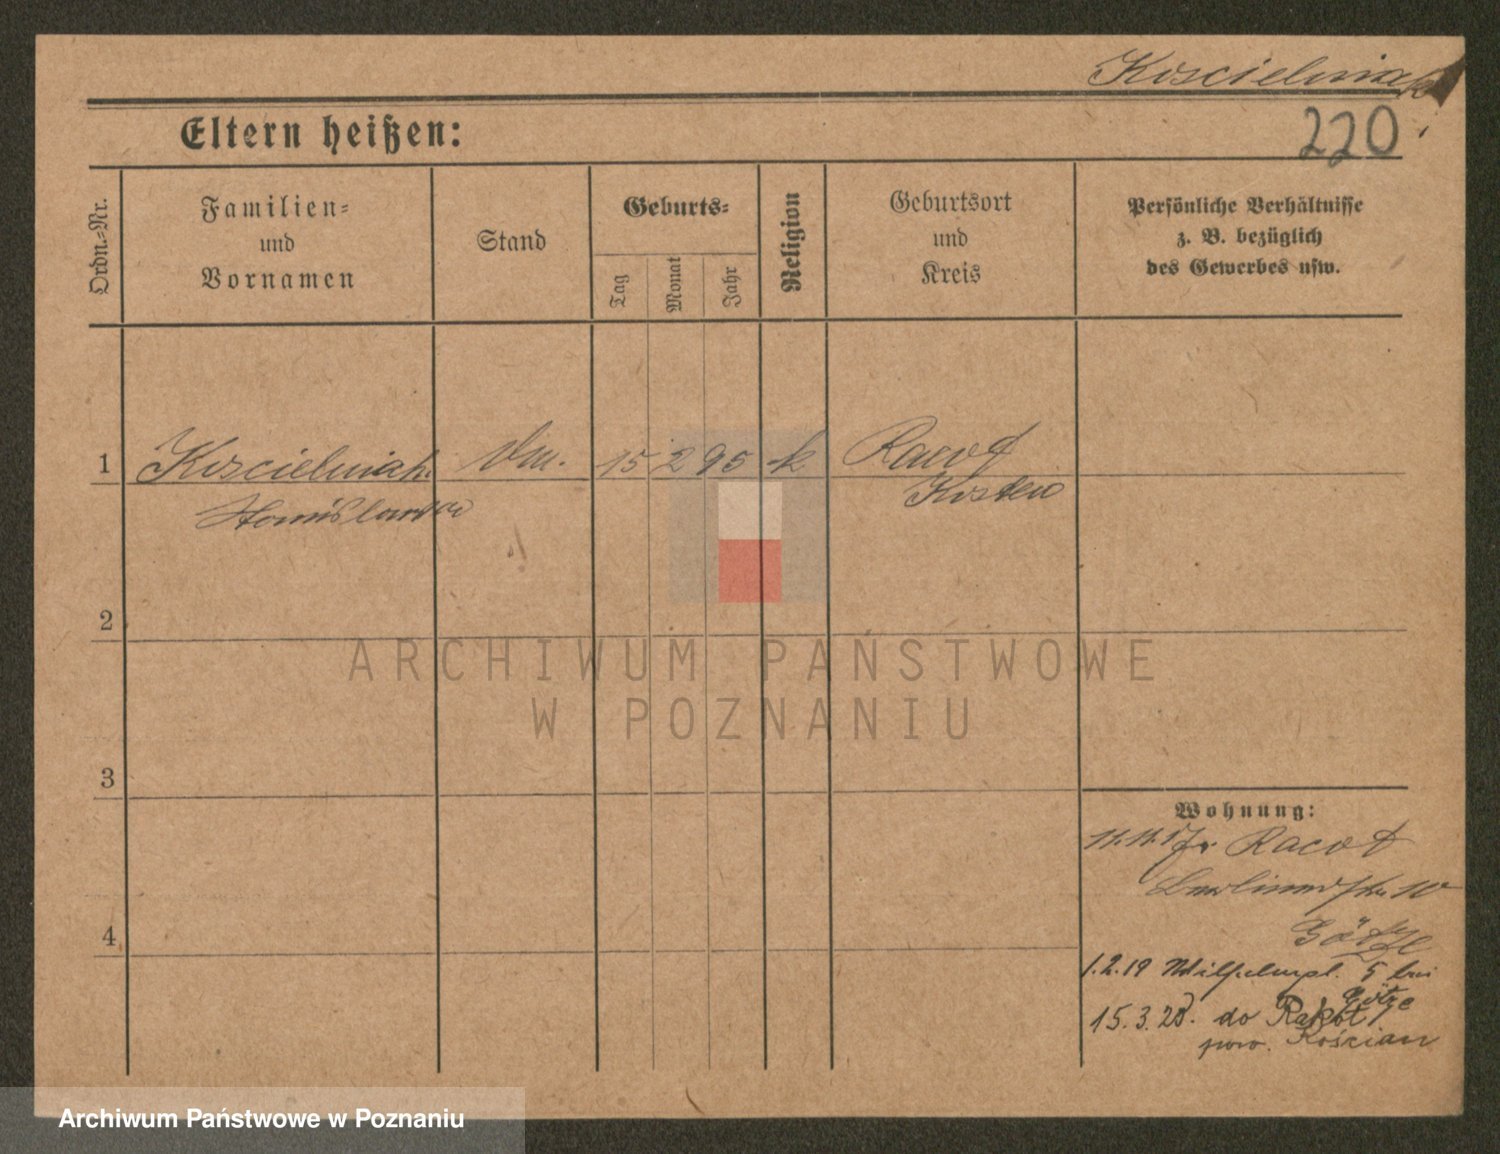 Koscielniak
220
Eltern heißen:
Ordn.-Nr.
Familien-
und
Vornamen
Stand
Geburts-
Tag
Monat
Jahr
Religion
Geburtsort
und
Kreis
Persönliche Verhältnisse
z. B. bezüglich
des Gewerbes usw.
1 Koscielniak 15 2 95 k Racot
Stanislawa Kosten
2
3
4
Wohnung:
11.11.17 Racot
Berlinerstr. 10
Götze
1.2.19 Wilhelmpl. 5 bei
Götze
15.3.20. do Rakot
pow. Kościan
ARCHIWUM PAŃSTWOWE
W POZNANIU
Archiwum Państwowe w Poznaniu